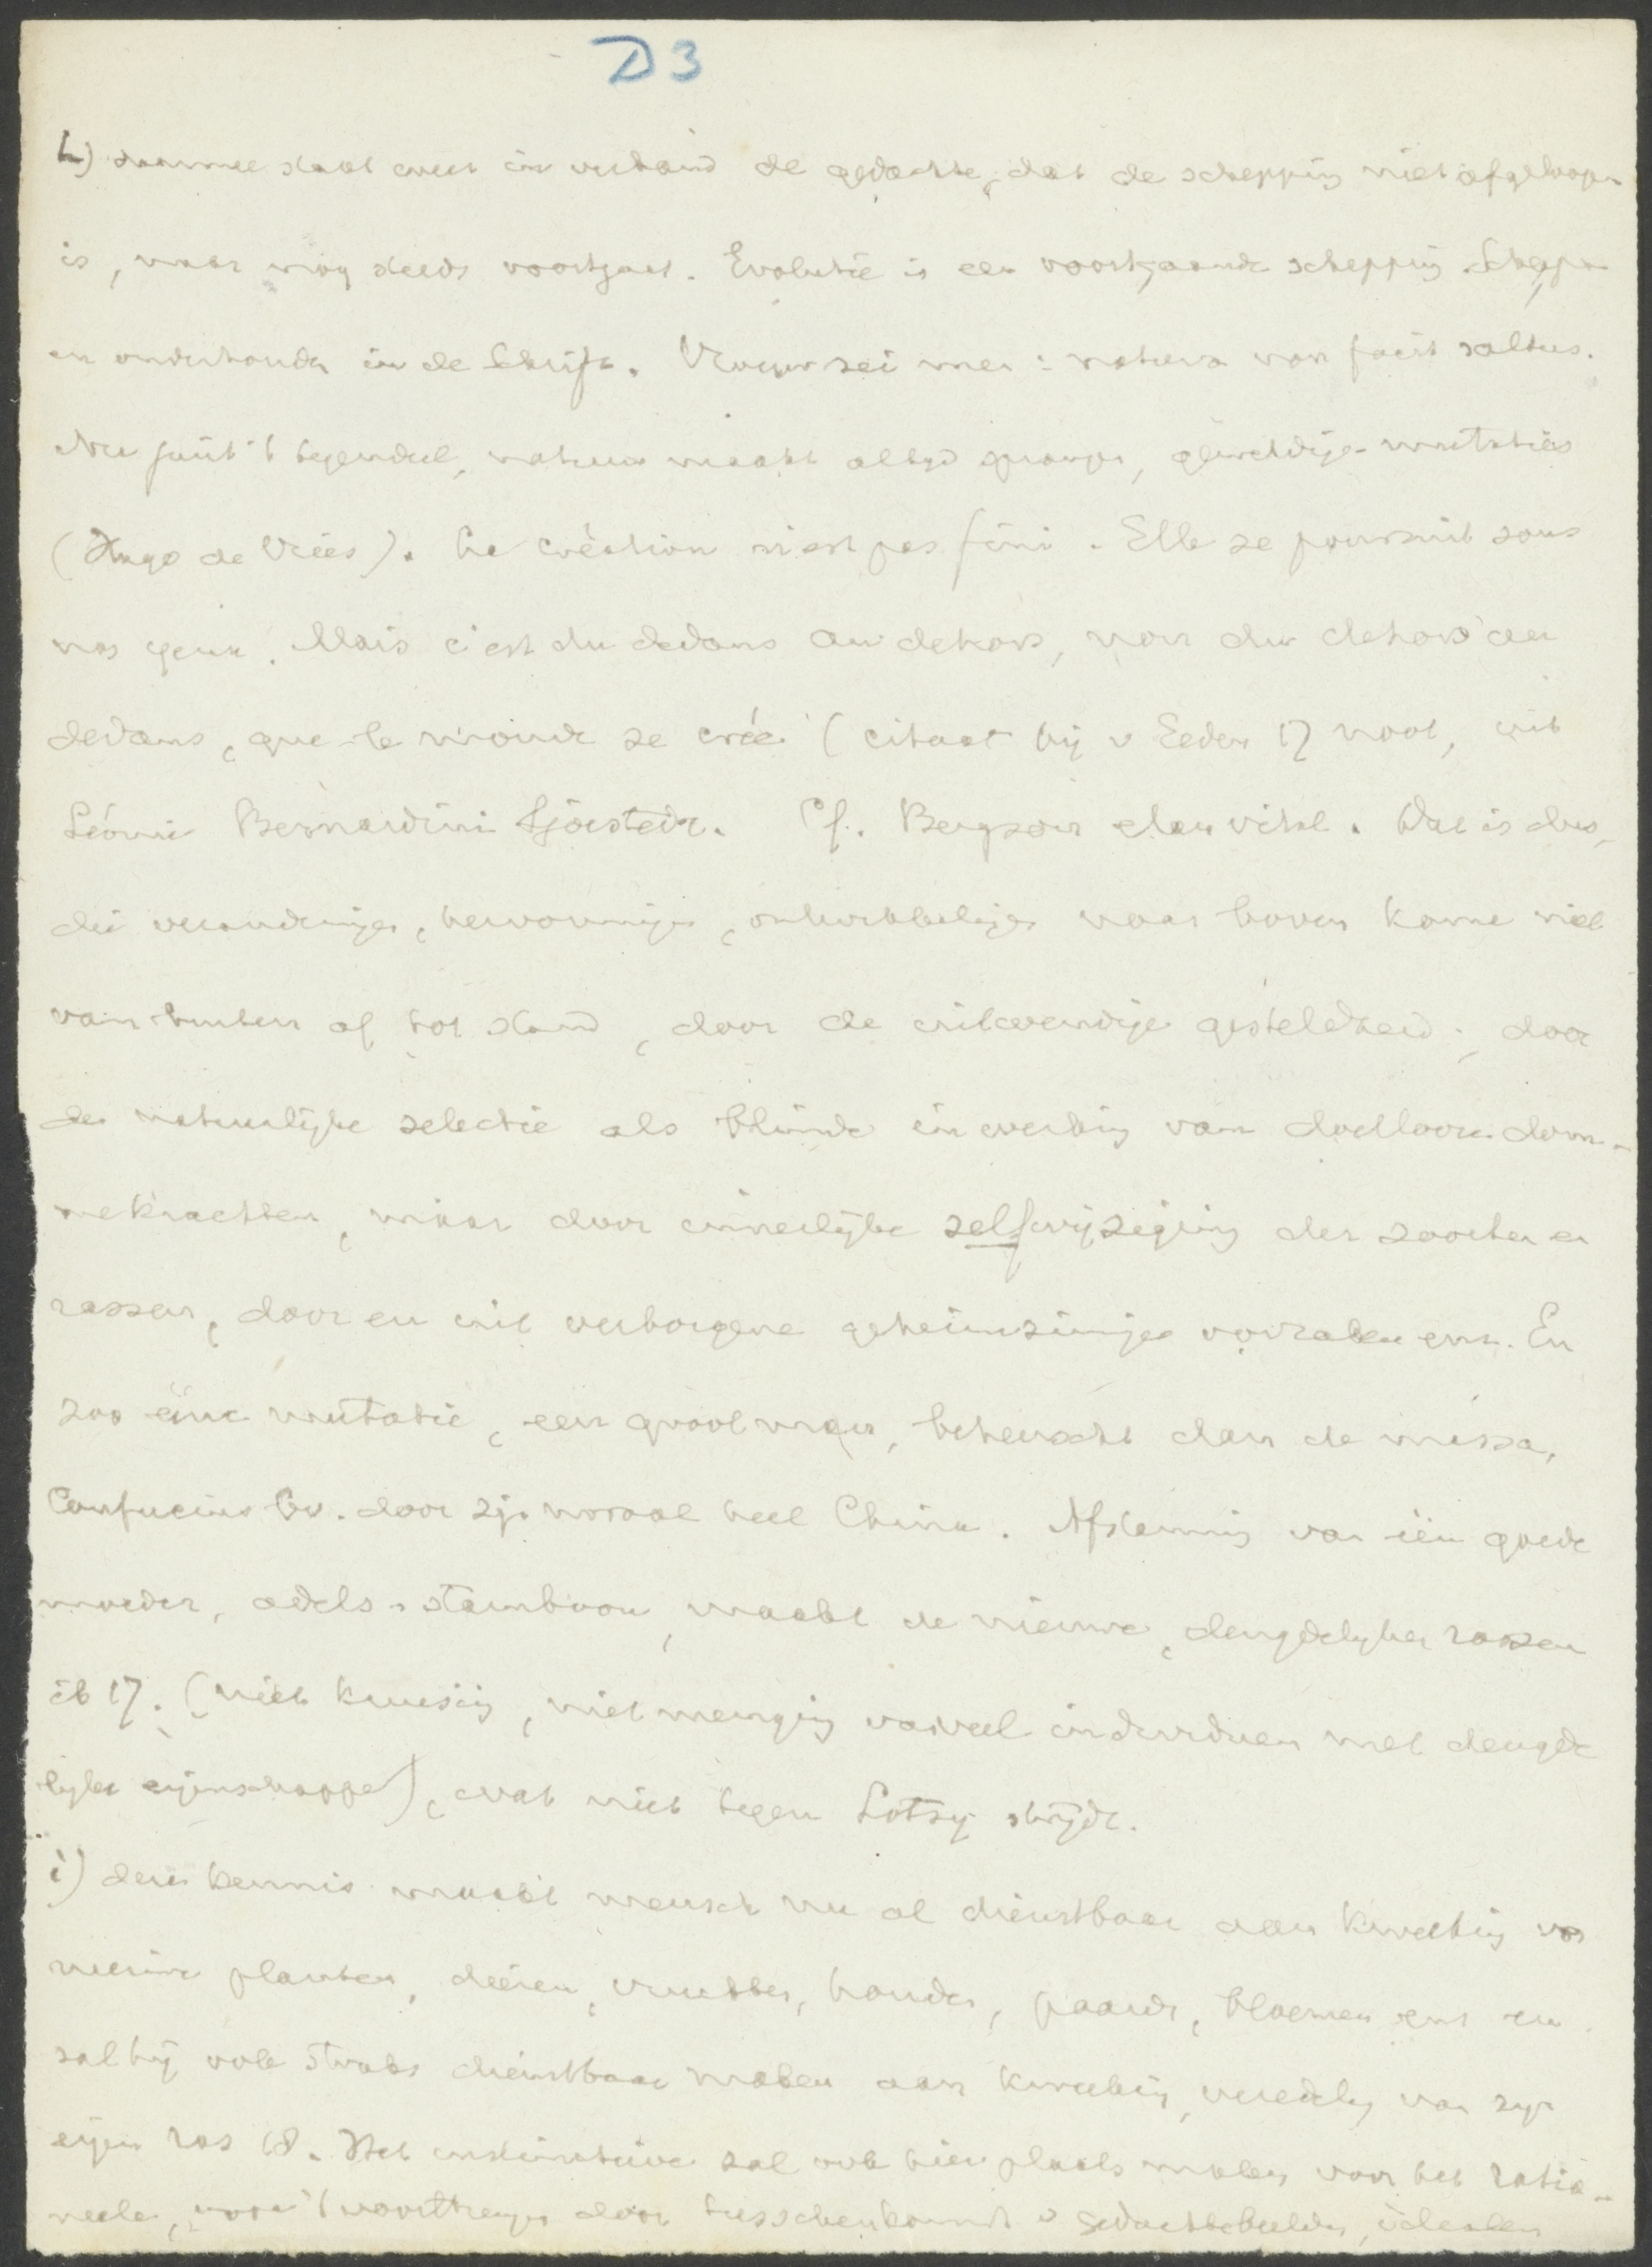 D3
h) daarmee staat weer in verband de gedachte, dat de schepping niet afgeloopen
is, maar nog steeds voortgaat. Evolutie is een voortgaande schepping. Scheppen
en onderhouden in de Schrift. Vroeger zei men: natura non facit saltus.
Nu juist 't tegendeel, natuur maakt altijd sprongen, geweldige mutaties
(Hugo de Vries). La création n'est pas fini. Elle se poursuit sous
nos yeux. Mais c'est du dedans au dehors, non du dehors au
dedans, que le monde se crée (citaat bij v Eeden 17 noot, uit
Léonie Bernardini Sjöstedt. Cf. Bergson elan vital. Dat is dus,
die veranderingen, hervormingen, ontwikkelingen naar boven komen niet
van buiten af tot stand, door de uitwendige gesteldheid, door
de natuurlijke selectie als blinde inwerking van doelloze dom-
me krachten, maar door innerlijke zelfwijziging der soorten en
rassen, door en uit verborgene geheimzinnige oorzaken enz. En
zoo eene mutatie, een groot man, beheerscht dan de massa,
Confucius bv. door zijn moraal heel China. Afstamming van één goede
moeder, adels-stamboom, maakt de nieuwe, deugdelijke rassen
ib 17. (niet kruising, niet menging van veel individuen met deugde
lijke eigenschappen), wat niet tegen Lotsy strijdt.
i) deze kennis maakt mensch nu al dienstbaar aan kweeking van
nieuwe planten, dieren, vruchten, honden, paarden, bloemen enz en
zal hij ook straks dienstbaar maken aan kweeking, veredeling van zijn
eigen ras 18. Het instinctieve zal ook hier plaats maken voor het ratio-
neele, voor 't voortbrengen door tusschenkomst v gedachtebeelden, idealen